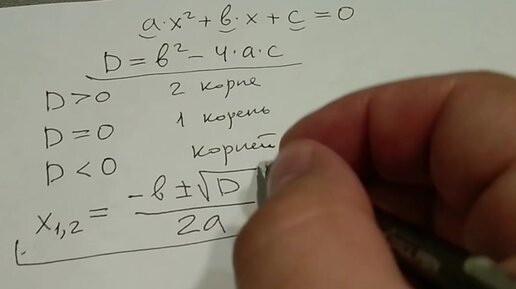 a·x² + b·x + c = 0
D = b² - 4·a·c
D > 0 2 корня
D = 0 1 корень
D < 0 корней
x₁,₂ = (-b ± √D) / 2a